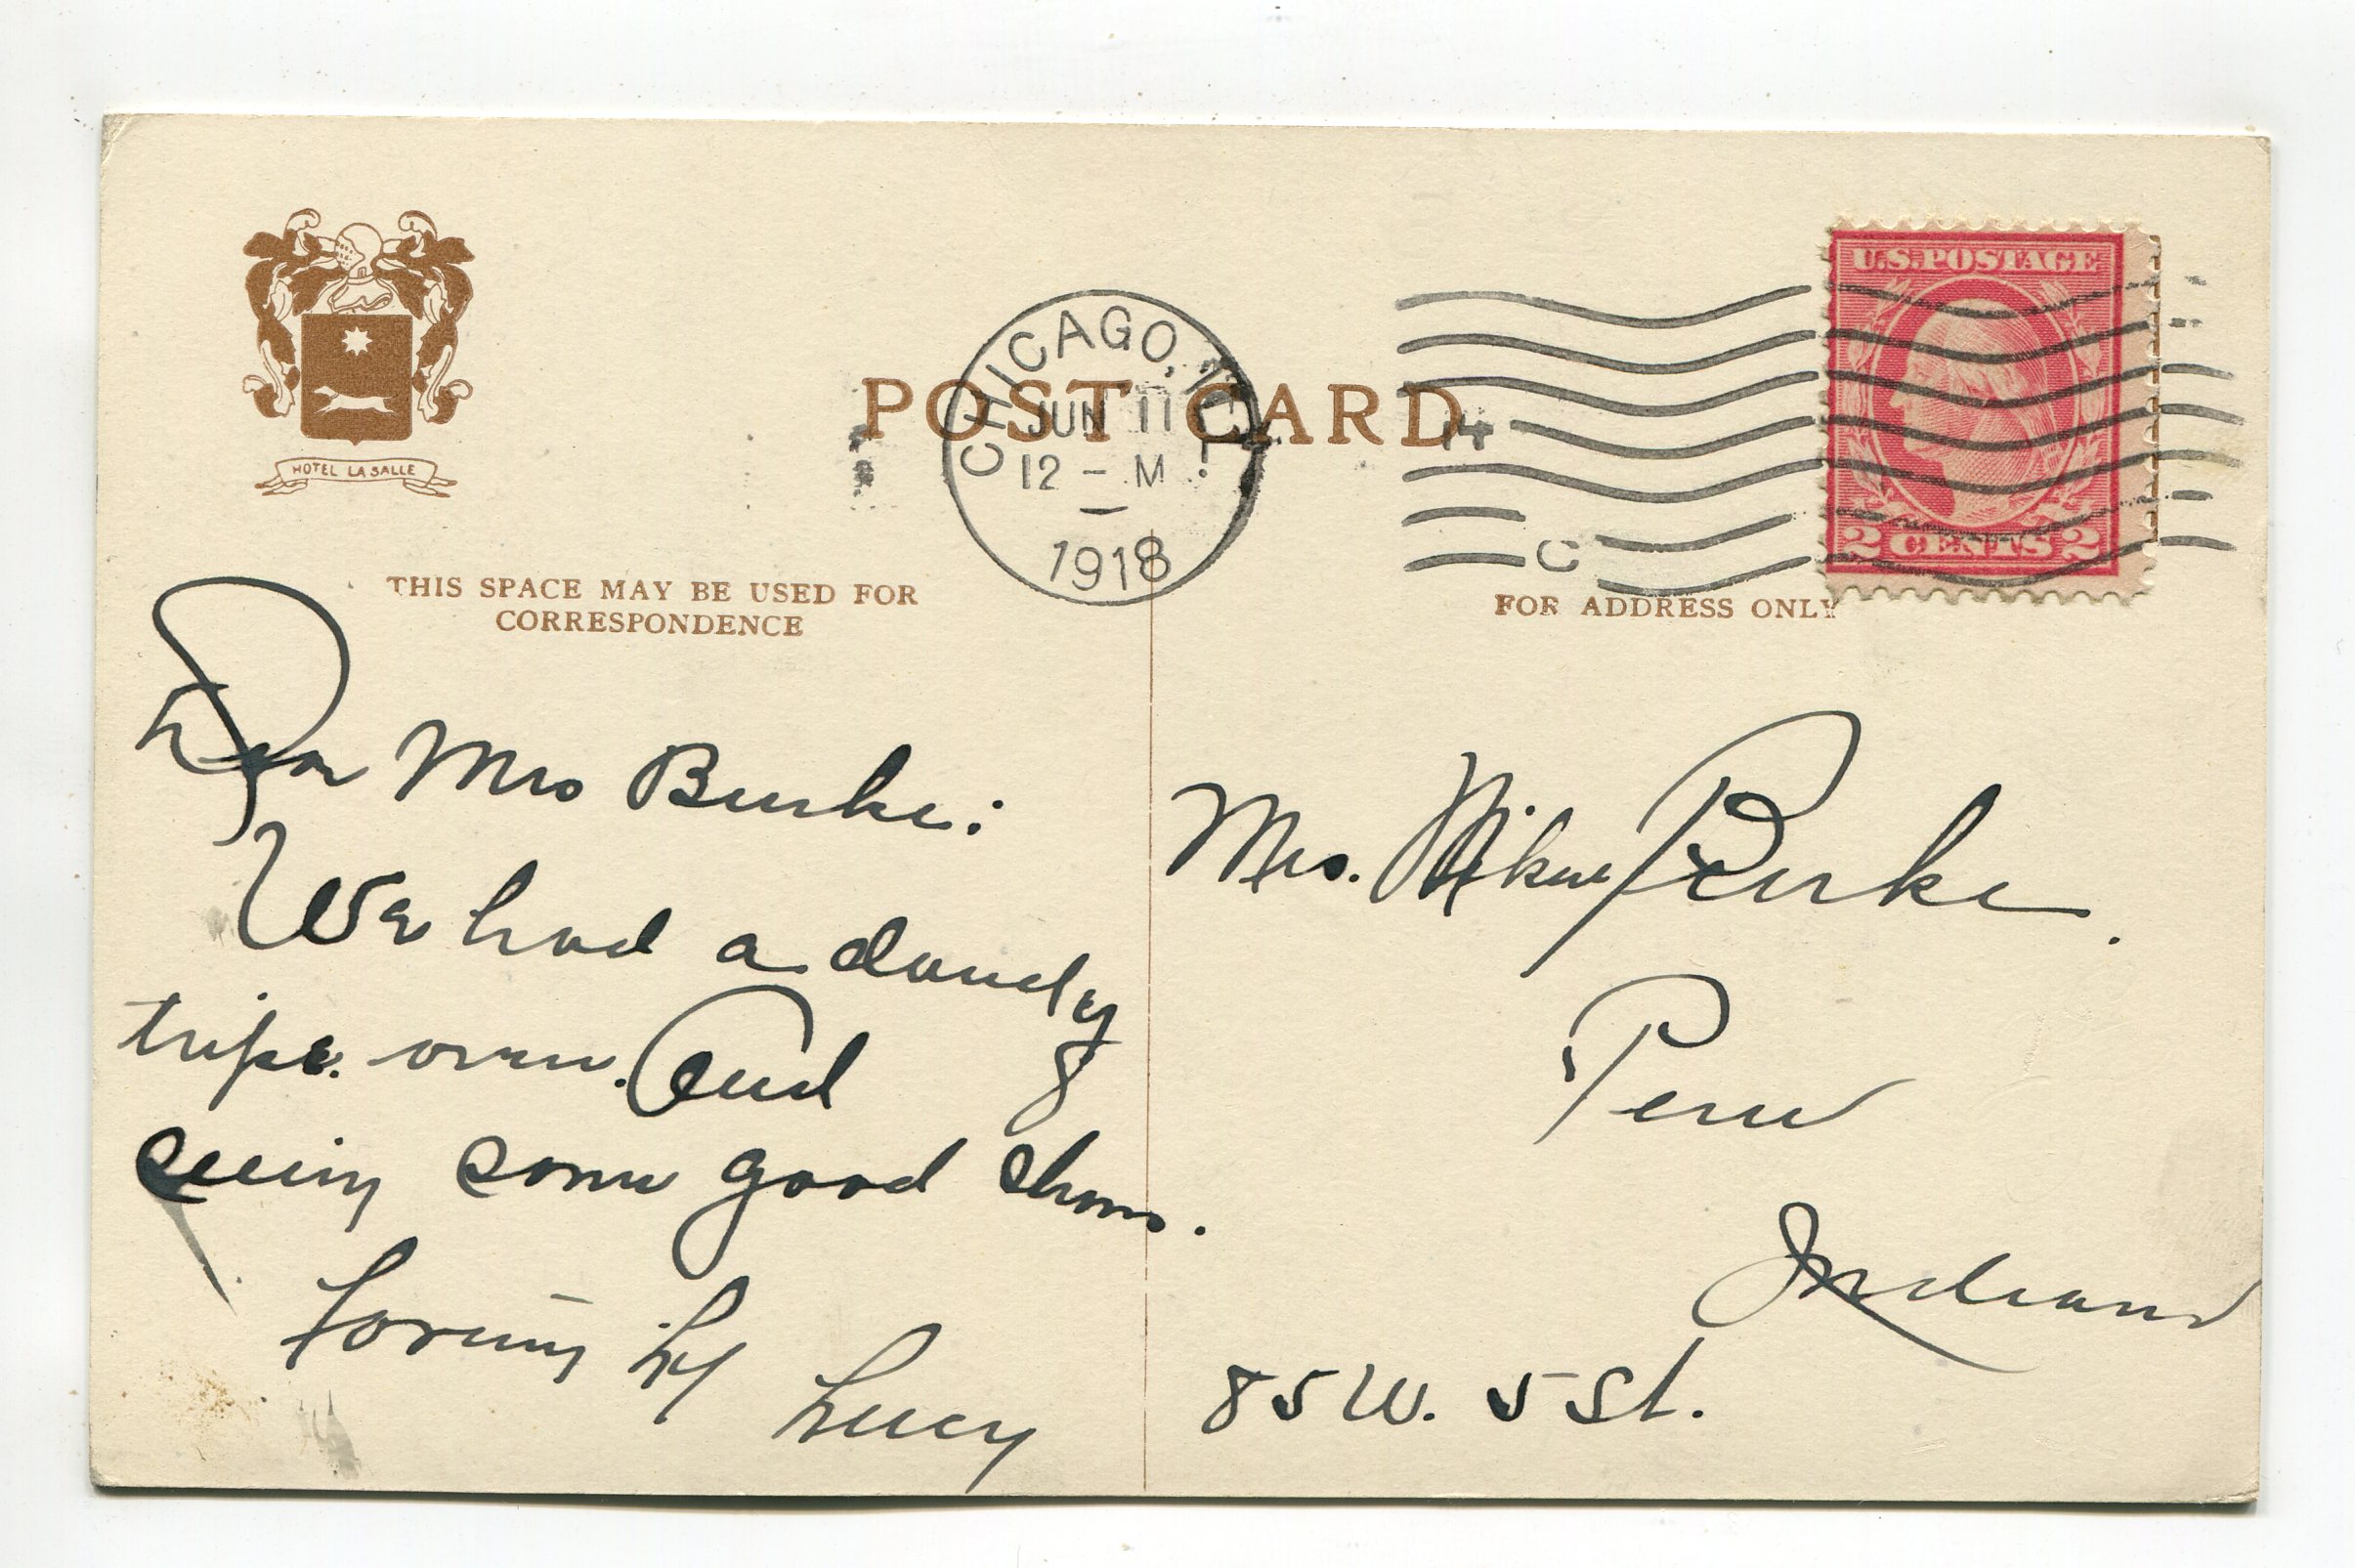 HOTEL LA SALLE
POST CARD
CHICAGO, ILL.
JUN 11
12 - M
1918
14
C
U.S. POSTAGE
2 CENTS 2
THIS SPACE MAY BE USED FOR
CORRESPONDENCE
FOR ADDRESS ONLY
Dear Mrs Burke:
We had a dandy
trip over. And
seeing some good shows.
Loving
Lucy
Mrs. Mike Burke.
Peru
Indiana
85 W. 5 St.